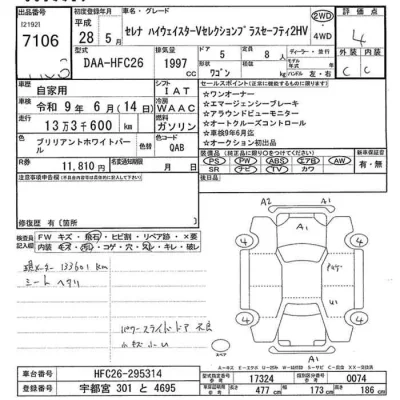 出品番号 初度登録年月 車名・グレード 評価点
I2192I
7106
平成 28年 5月 セレナ ハイウェイスターVセレクションプラスセーフティ2HV 2WD・4WD 4
型式 排気量 ドア 定員 外装 内装
DAA-HFC26 1997cc 5 8人 C C
ワゴン ハンドル 左・右
車歴 自家用 シフト IAT
車検 令和 9年 6月(14日) エアコン WAAC
走行 13万3千600km 燃料 ガソリン
色 ブリリアントホワイトパール 色替 カラーNo. QAB
R券 11,810円 名変期限 月 日
セールスポイント
☆ワンオーナー
☆エマージェンシーブレーキ
☆アラウンドビューモニター
☆オートクルーズコントロール
☆車検9年6月迄
☆オークション初出品
PS PW ABS エアB AW 有・無
SR ナビ TV カワ
後日品
注意事項申告欄
修復歴 有〔箇所 〕
検査員記入欄 FW キズ・飛石・ヒビ割・リペア跡・×要
内装 キズ・汚レ・コゲ・穴・スレ・キレ・破レ
現メーター 133601km
シートヘタリ
パワースライドドア不良
小キズ小U
A2 A1
A1
4 4
4 4
A1
スペア
車台番号 HFC26-295314 型式指定番号 17324 類別区分番号 0074
登録番号 宇都宮 301 と 4695 長さ 477cm 幅 173cm 高さ 186cm